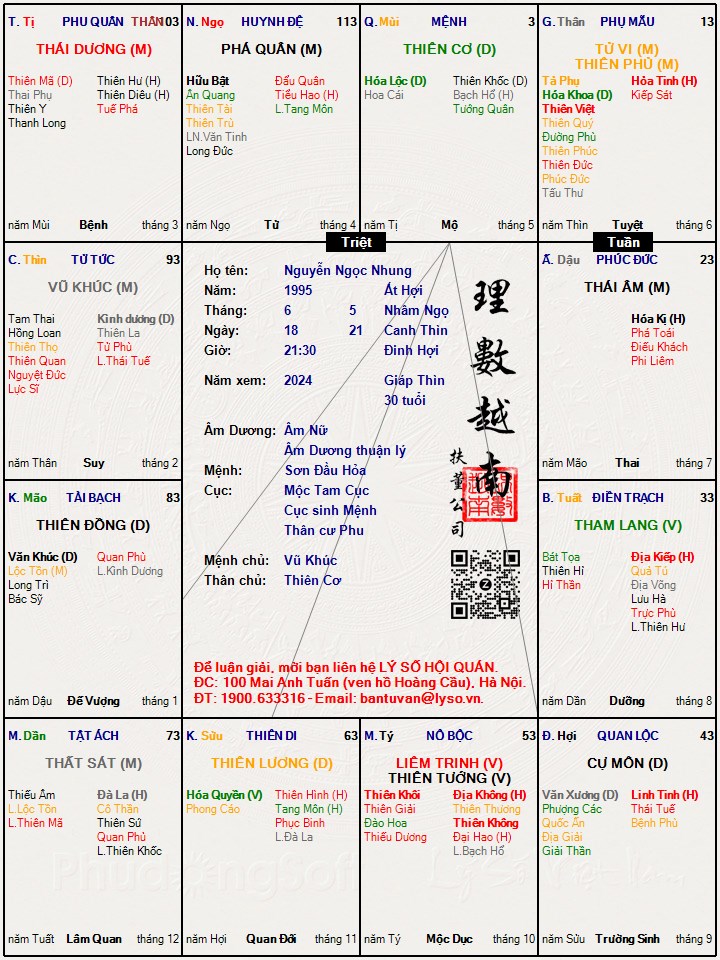 T. Tị PHU QUÂN THÂN 103
THÁI DƯƠNG (M)
Thiên Mã (D) Thiên Hư (H)
Thai Phụ Thiên Diêu (H)
Thiên Y Tuế Phá
Thanh Long
năm Mùi Bệnh tháng 3
N. Ngọ HUYNH ĐỆ 113
PHÁ QUÂN (M)
Hữu Bật Đẩu Quân
Ân Quang Tiểu Hao (H)
Thiên Tài L.Tang Môn
Thiên Trù
LN.Văn Tinh
Long Đức
năm Ngọ Tử tháng 4
Q. Mùi MỆNH 3
THIÊN CƠ (D)
Hóa Lộc (D) Thiên Khốc (D)
Hoa Cái Bạch Hổ (H)
Tướng Quân
năm Tị Mộ tháng 5
G. Thân PHỤ MẪU 13
TỬ VI (M)
THIÊN PHỦ (M)
Tả Phụ Hỏa Tinh (H)
Hóa Khoa (D) Kiếp Sát
Thiên Việt
Thiên Quý
Đường Phù
Thiên Phúc
Thiên Đức
Phúc Đức
Tấu Thư
năm Thìn Tuyệt tháng 6
Triệt
Tuần
C. Thìn TỬ TỨC 93
VŨ KHÚC (M)
Tam Thai Kình dương (D)
Hồng Loan Thiên La
Thiên Thọ Tử Phù
Thiên Quan L.Thái Tuế
Nguyệt Đức
Lực Sĩ
năm Thân Suy tháng 2
Họ tên: Nguyễn Ngọc Nhung
Năm: 1995 Ất Hợi
Tháng: 6 5 Nhâm Ngọ
Ngày: 18 21 Canh Thìn
Giờ: 21:30 Đinh Hợi
Năm xem: 2024 Giáp Thìn
30 tuổi
Âm Dương: Âm Nữ
Âm Dương thuận lý
Mệnh: Sơn Đầu Hỏa
Cục: Mộc Tam Cục
Cục sinh Mệnh
Thân cư Phu
Mệnh chủ: Vũ Khúc
Thân chủ: Thiên Cơ
理數越南
扶董公司
Để luận giải, mời bạn liên hệ LÝ SỐ HỘI QUÁN.
ĐC: 100 Mai Anh Tuấn (ven hồ Hoàng Cầu), Hà Nội.
ĐT: 1900.633316 - Email: bantuvan@lyso.vn.
Ấ. Dậu PHÚC ĐỨC 23
THÁI ÂM (M)
Hóa Kị (H)
Phá Toái
Điếu Khách
Phi Liêm
năm Mão Thai tháng 7
K. Mão TÀI BẠCH 83
THIÊN ĐỒNG (D)
Văn Khúc (D) Quan Phủ
Lộc Tồn (M) L.Kình Dương
Long Trì
Bác Sỹ
năm Dậu Đế Vượng tháng 1
B. Tuất ĐIỀN TRẠCH 33
THAM LANG (V)
Bát Tọa Địa Kiếp (H)
Thiên Hỉ Quả Tú
Hỉ Thần Địa Võng
Lưu Hà
Trực Phù
L.Thiên Hư
năm Dần Dưỡng tháng 8
M. Dần TẬT ÁCH 73
THẤT SÁT (M)
Thiếu Âm Đà La (H)
L.Lộc Tồn Cô Thần
L.Thiên Mã Thiên Sứ
Quan Phủ
L.Thiên Khốc
năm Tuất Lâm Quan tháng 12
K. Sửu THIÊN DI 63
THIÊN LƯƠNG (D)
Hóa Quyền (V) Thiên Hình (H)
Phong Cáo Tang Môn (H)
Phục Binh
L.Đà La
năm Hợi Quan Đới tháng 11
M. Tý NÔ BỘC 53
LIÊM TRINH (V)
THIÊN TƯỚNG (V)
Thiên Khôi Địa Không (H)
Thiên Giải Thiên Thương
Đào Hoa Thiên Không
Thiếu Dương Đại Hao (H)
L.Bạch Hổ
năm Tý Mộc Dục tháng 10
Đ. Hợi QUAN LỘC 43
CỰ MÔN (D)
Văn Xương (D) Linh Tinh (H)
Phượng Các Thái Tuế
Quốc Ấn Bệnh Phù
Địa Giải
Giải Thần
năm Sửu Trường Sinh tháng 9